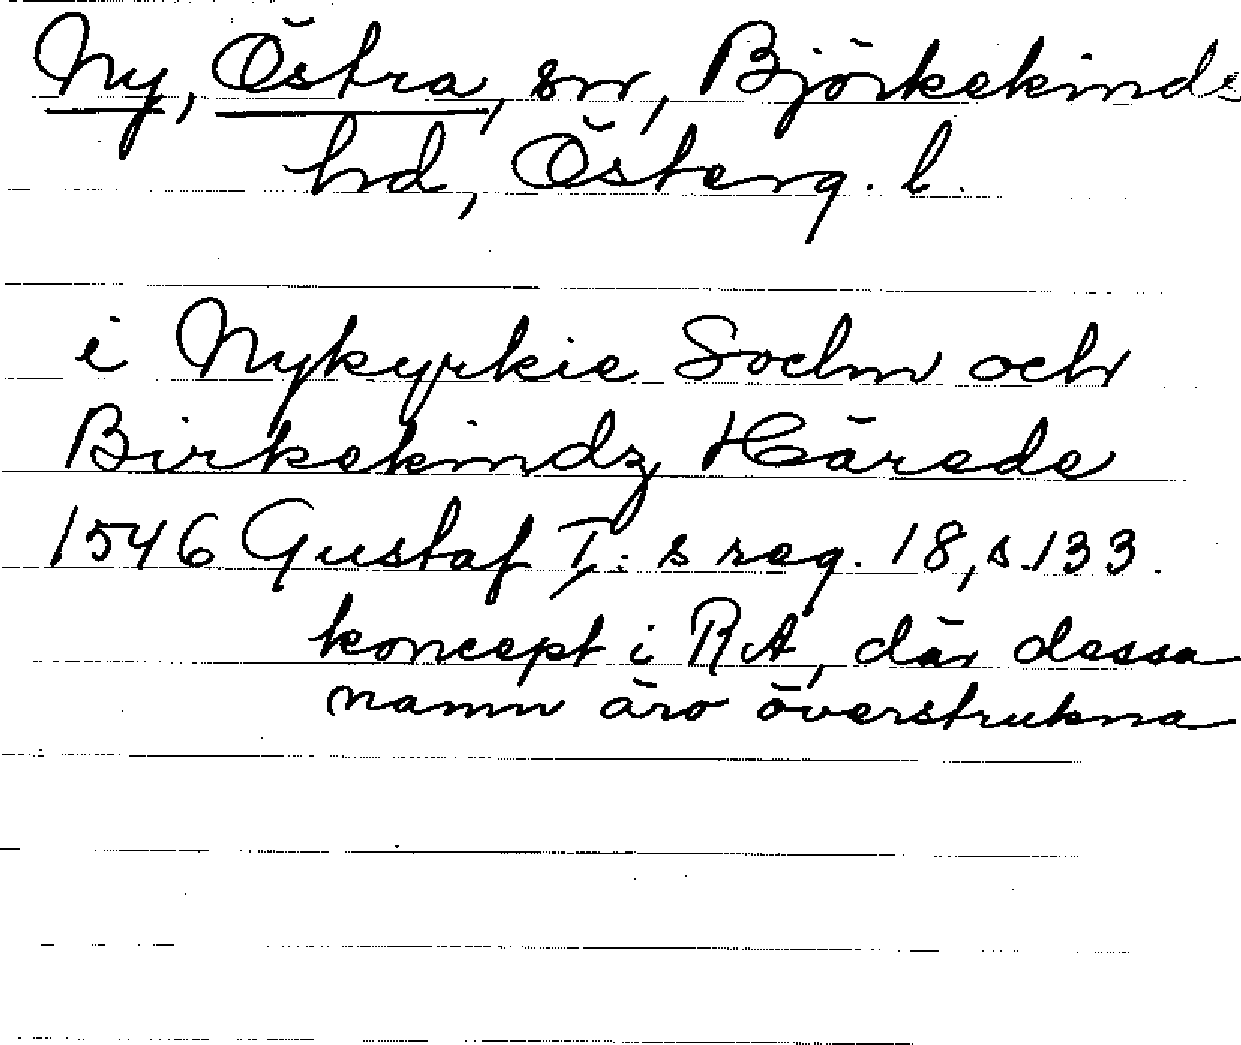 Ny, Östra, sn, Björkekinds
hd, Österg. l.
i Nykyrkie Sochn och
Birkekindz Härede
1546 Gustaf I:s reg. 18, s. 133.
koncept i RA, där dessa
namn äro överstrukna